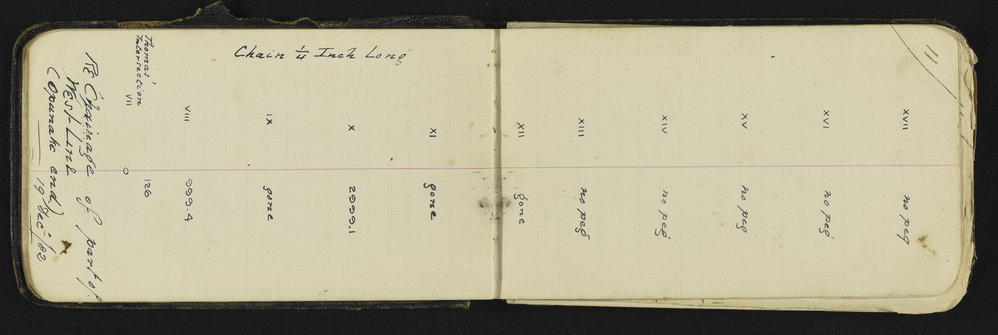 11
Chain 1/4 Inch Long
Re Chainage of part of
West Line
(Opunake end)
19 Dec - / 82
Thomas'
Intersection
VII O 126
VIII 999.4
IX gone
X 2999.1
XI gone
XII gone
XIII no peg
XIV no peg
XV no peg
XVI no peg
XVII no peg